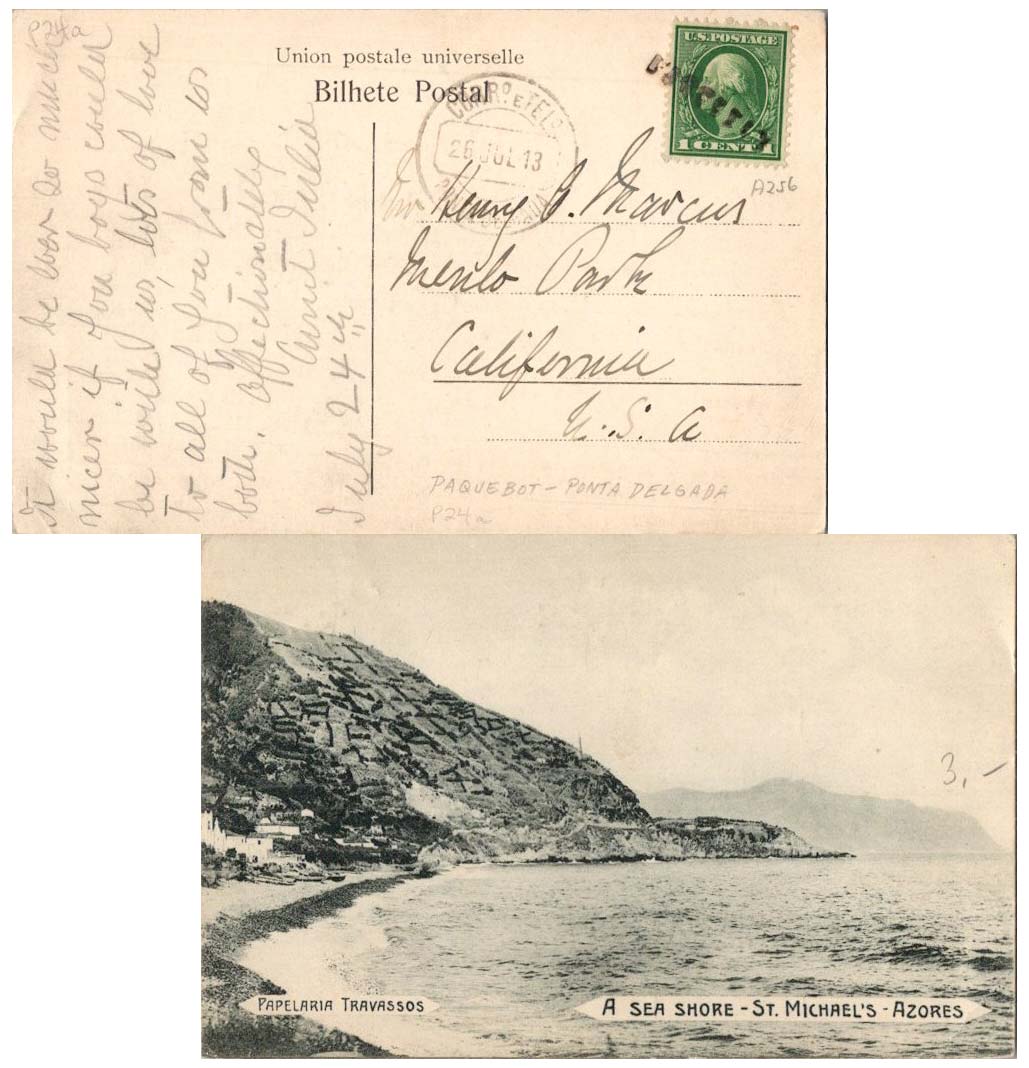 P24a
Union postale universelle
Bilhete Postal
U.S. POSTAGE
1 CENT 1
A256
26 JUL 13
Henry C. Marcus
Menlo Park
California
U. S. A
PAQUEBOT - PONTA DELGADA
P24a
It would be ever so much
nicer if you boys could
be with us, lots of love
to all of you from us
both, affectionately
Aunt Julia
July 24th
3,-
PAPELARIA TRAVASSOS
A SEA SHORE - ST. MICHAEL'S - AZORES